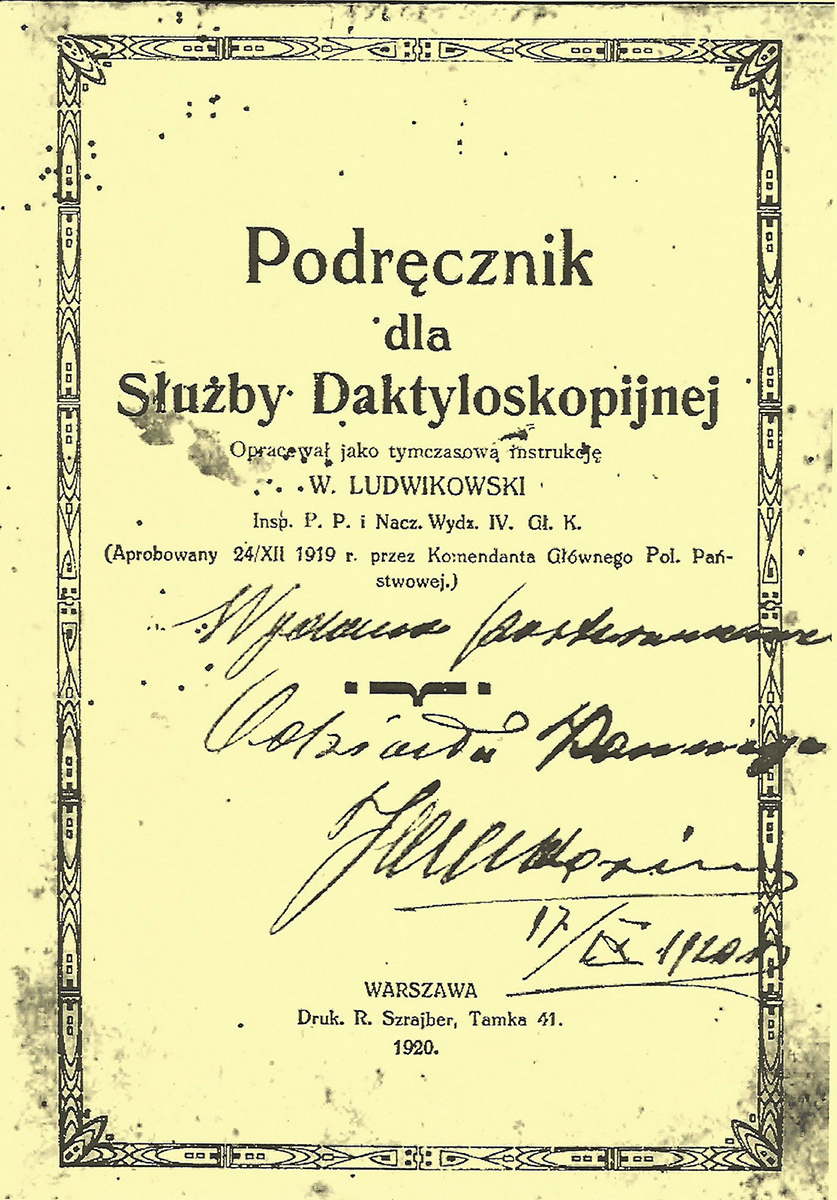 Podręcznik
dla
Służby Daktyloskopijnej
Opracował jako tymczasową instrukcję
W. LUDWIKOWSKI
Insp. P. P. i Nacz. Wydz. IV. Gł. K.
(Aprobowany 24/XII 1919 r. przez Komendanta Głównego Pol. Pań-
stwowej.)
17/IX 1920
WARSZAWA
Druk. R. Szrajber, Tamka 41.
1920.